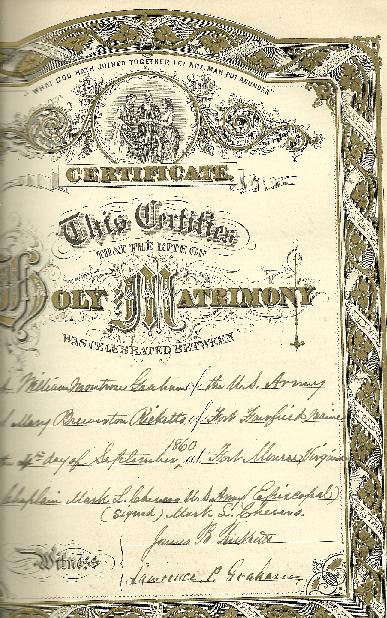 WHAT GOD HATH JOINED TOGETHER LET NOT MAN PUT ASUNDER
CERTIFICATE.
This Certifies
THAT THE RITE OF
HOLY MATRIMONY
WAS CELEBRATED BETWEEN
William Montrose Graham of the U.S. Army
Mary Brewerton Ricketts of Fort Fairfield Maine
4th day of September, 1860 at Fort Monroe, Virginia
Chaplain Mark L. Chevers U.S. Army (Episcopal)
(signed) Mark L. Chevers.
James B. Ricketts
Witness
Lawrence P. Graham